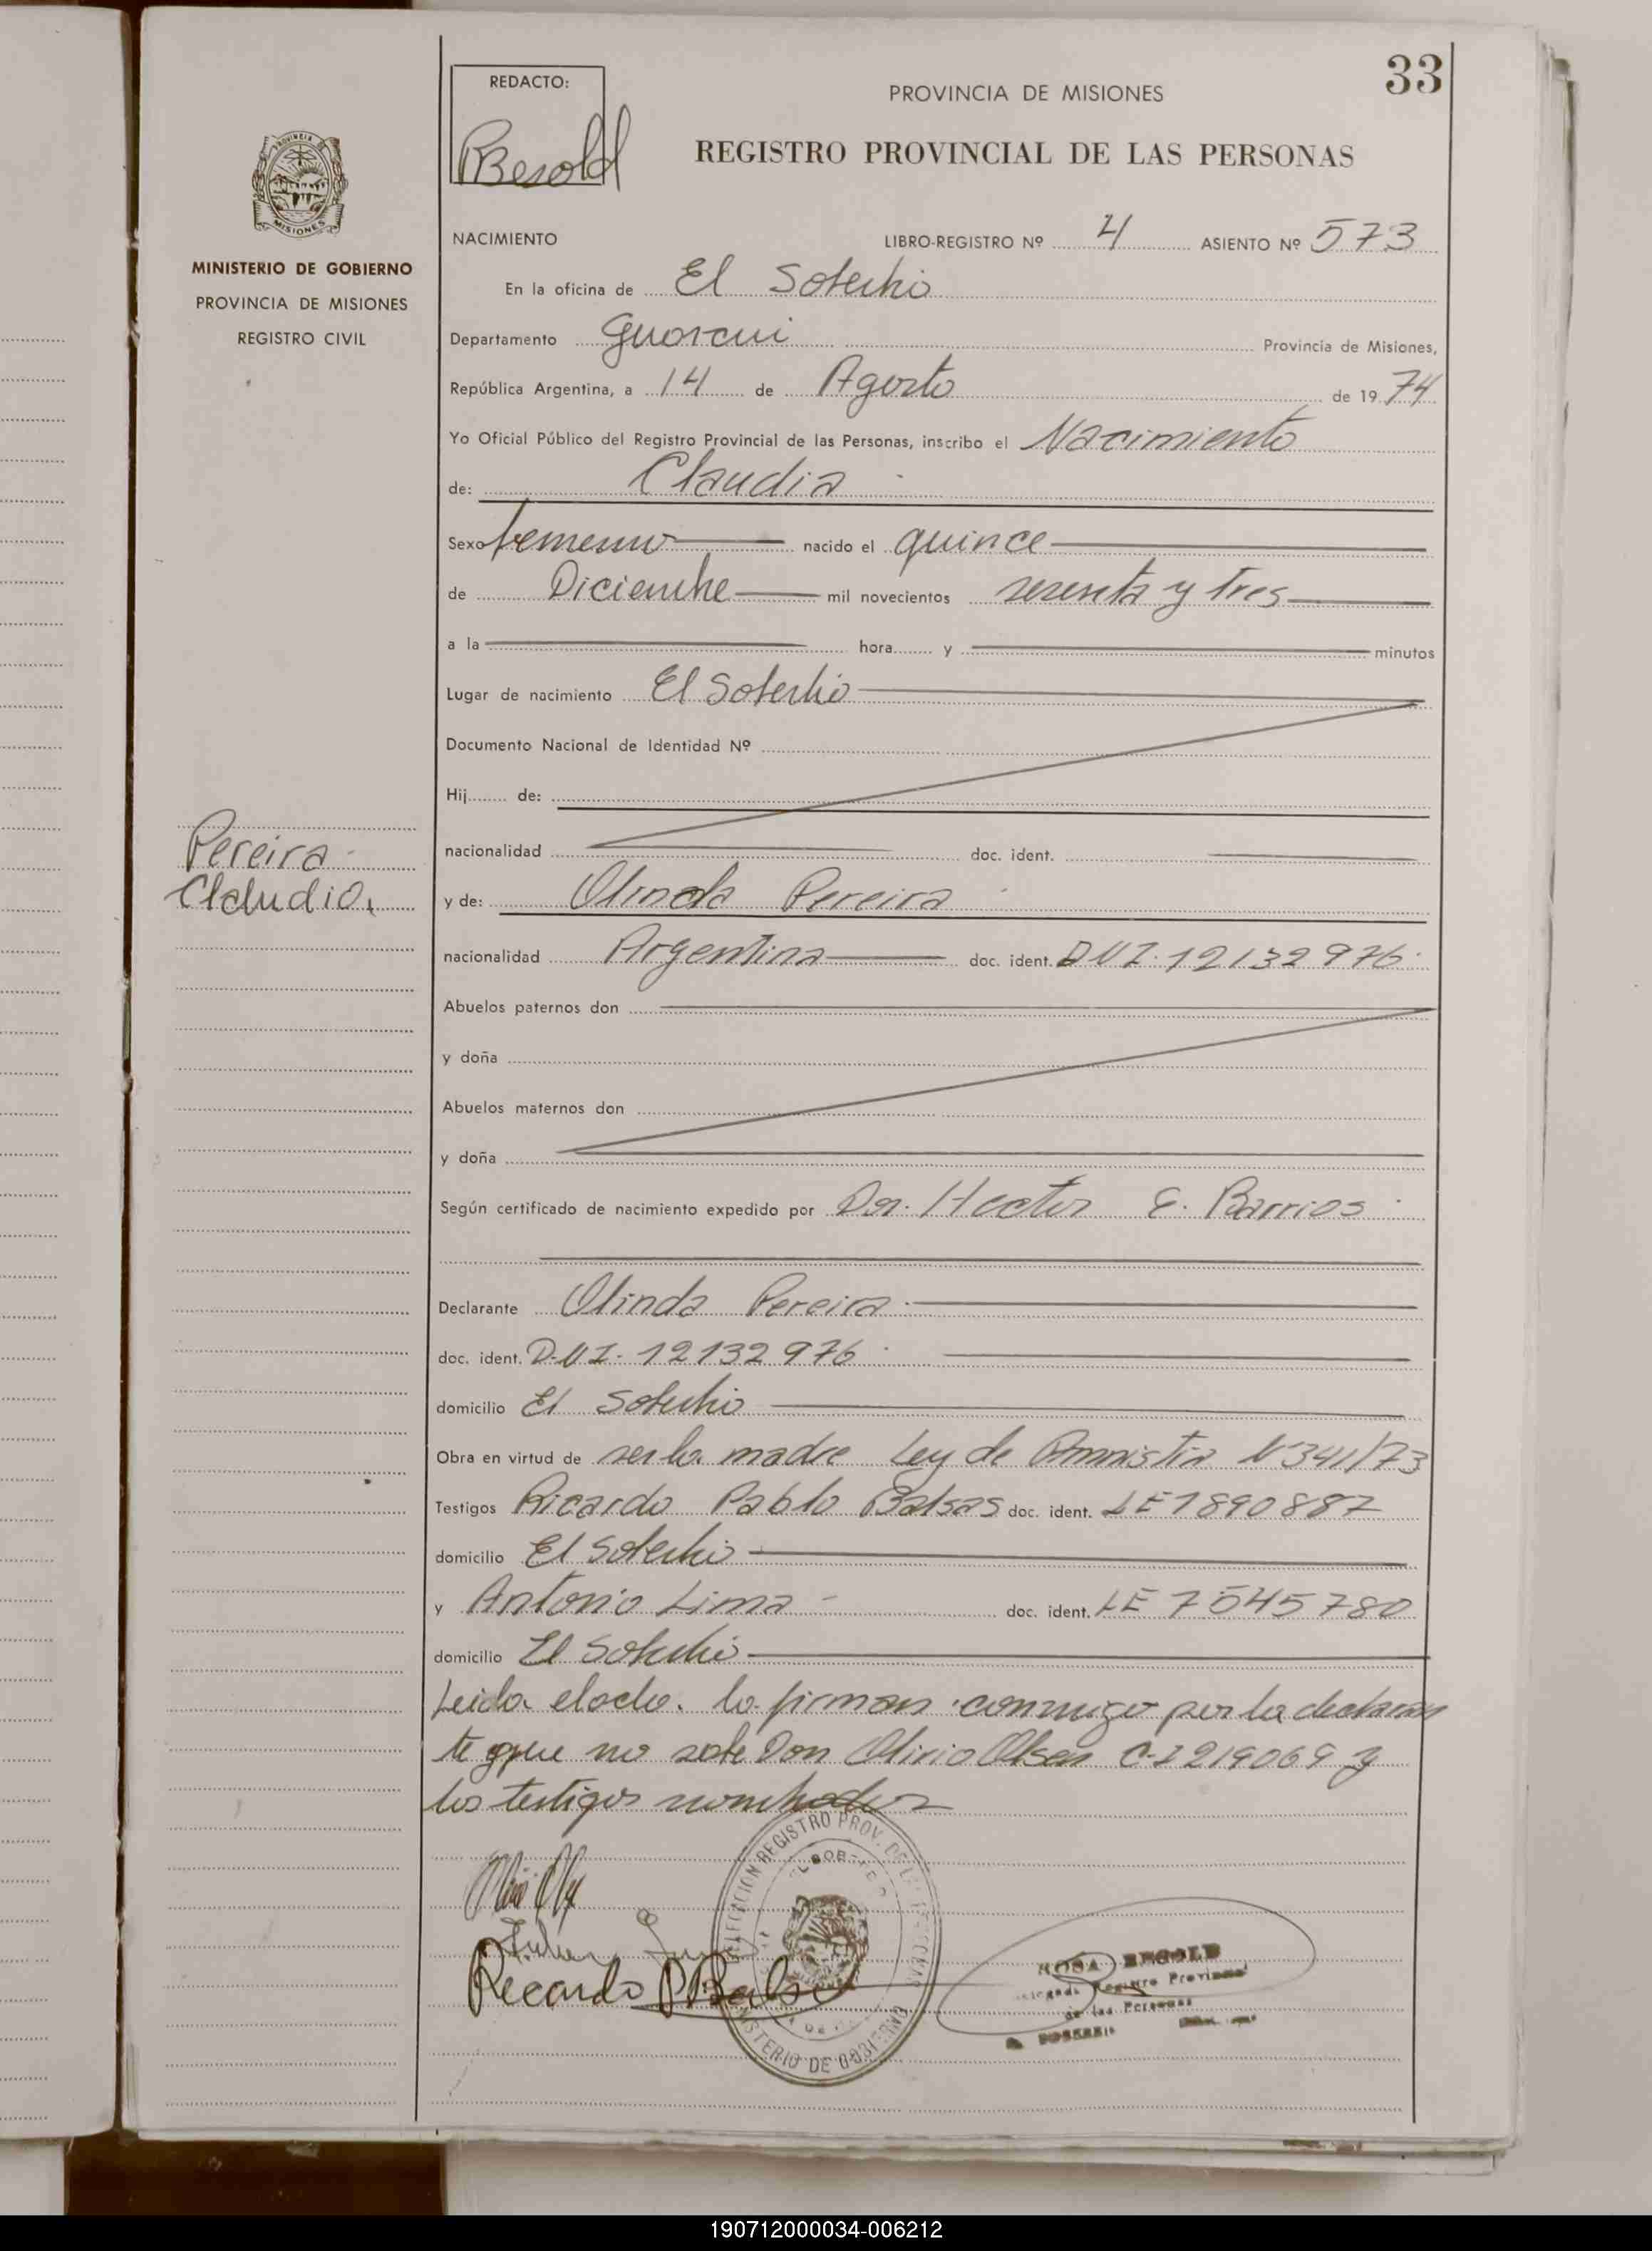 33
REDACTO:
Besold
PROVINCIA DE MISIONES
REGISTRO PROVINCIAL DE LAS PERSONAS
PROVINCIA DE
MISIONES
MINISTERIO DE GOBIERNO
PROVINCIA DE MISIONES
REGISTRO CIVIL
NACIMIENTO LIBRO-REGISTRO Nº 4 ASIENTO Nº 573
En la oficina de El Soberbio
Departamento Guarani Provincia de Misiones,
República Argentina, a 14 de Agosto de 1974
Yo Oficial Público del Registro Provincial de las Personas, inscribo el Nacimiento
de: Claudia
Sexo femenino nacido el quince
de Diciembre mil novecientos sesenta y tres
a la hora y minutos
Lugar de nacimiento El Soberbio
Documento Nacional de Identidad Nº
Hij de:
nacionalidad doc. ident.
Pereira
Claudia
y de: Olinda Pereira
nacionalidad Argentina doc. ident. DNI. 12132976
Abuelos paternos don
y doña
Abuelos maternos don
y doña
Según certificado de nacimiento expedido por Dr. Hector E. Barrios
Declarante Olinda Pereira
doc. ident. D.N.I. 12132976
domicilio El Soberbio
Obra en virtud de ser la madre Ley de Amnistia Nº341/73
Testigos Ricardo Pablo Balsas doc. ident. LE 7890887
domicilio El Soberbio
y Antonio Lima doc. ident. LE 7545780
domicilio El Soberbio
Leida el acta. la firman conmigo por la declaran
te que no sabe Don Olirio Olsen C.I 219069 y
los testigos nombrados
Ricardo P Balsa
REGISTRO PROV. DE LAS PERSONAS
MINISTERIO DE GOBIERNO
ROSA BESOLD
Registro Provincial
de las Personas
190712000034-006212